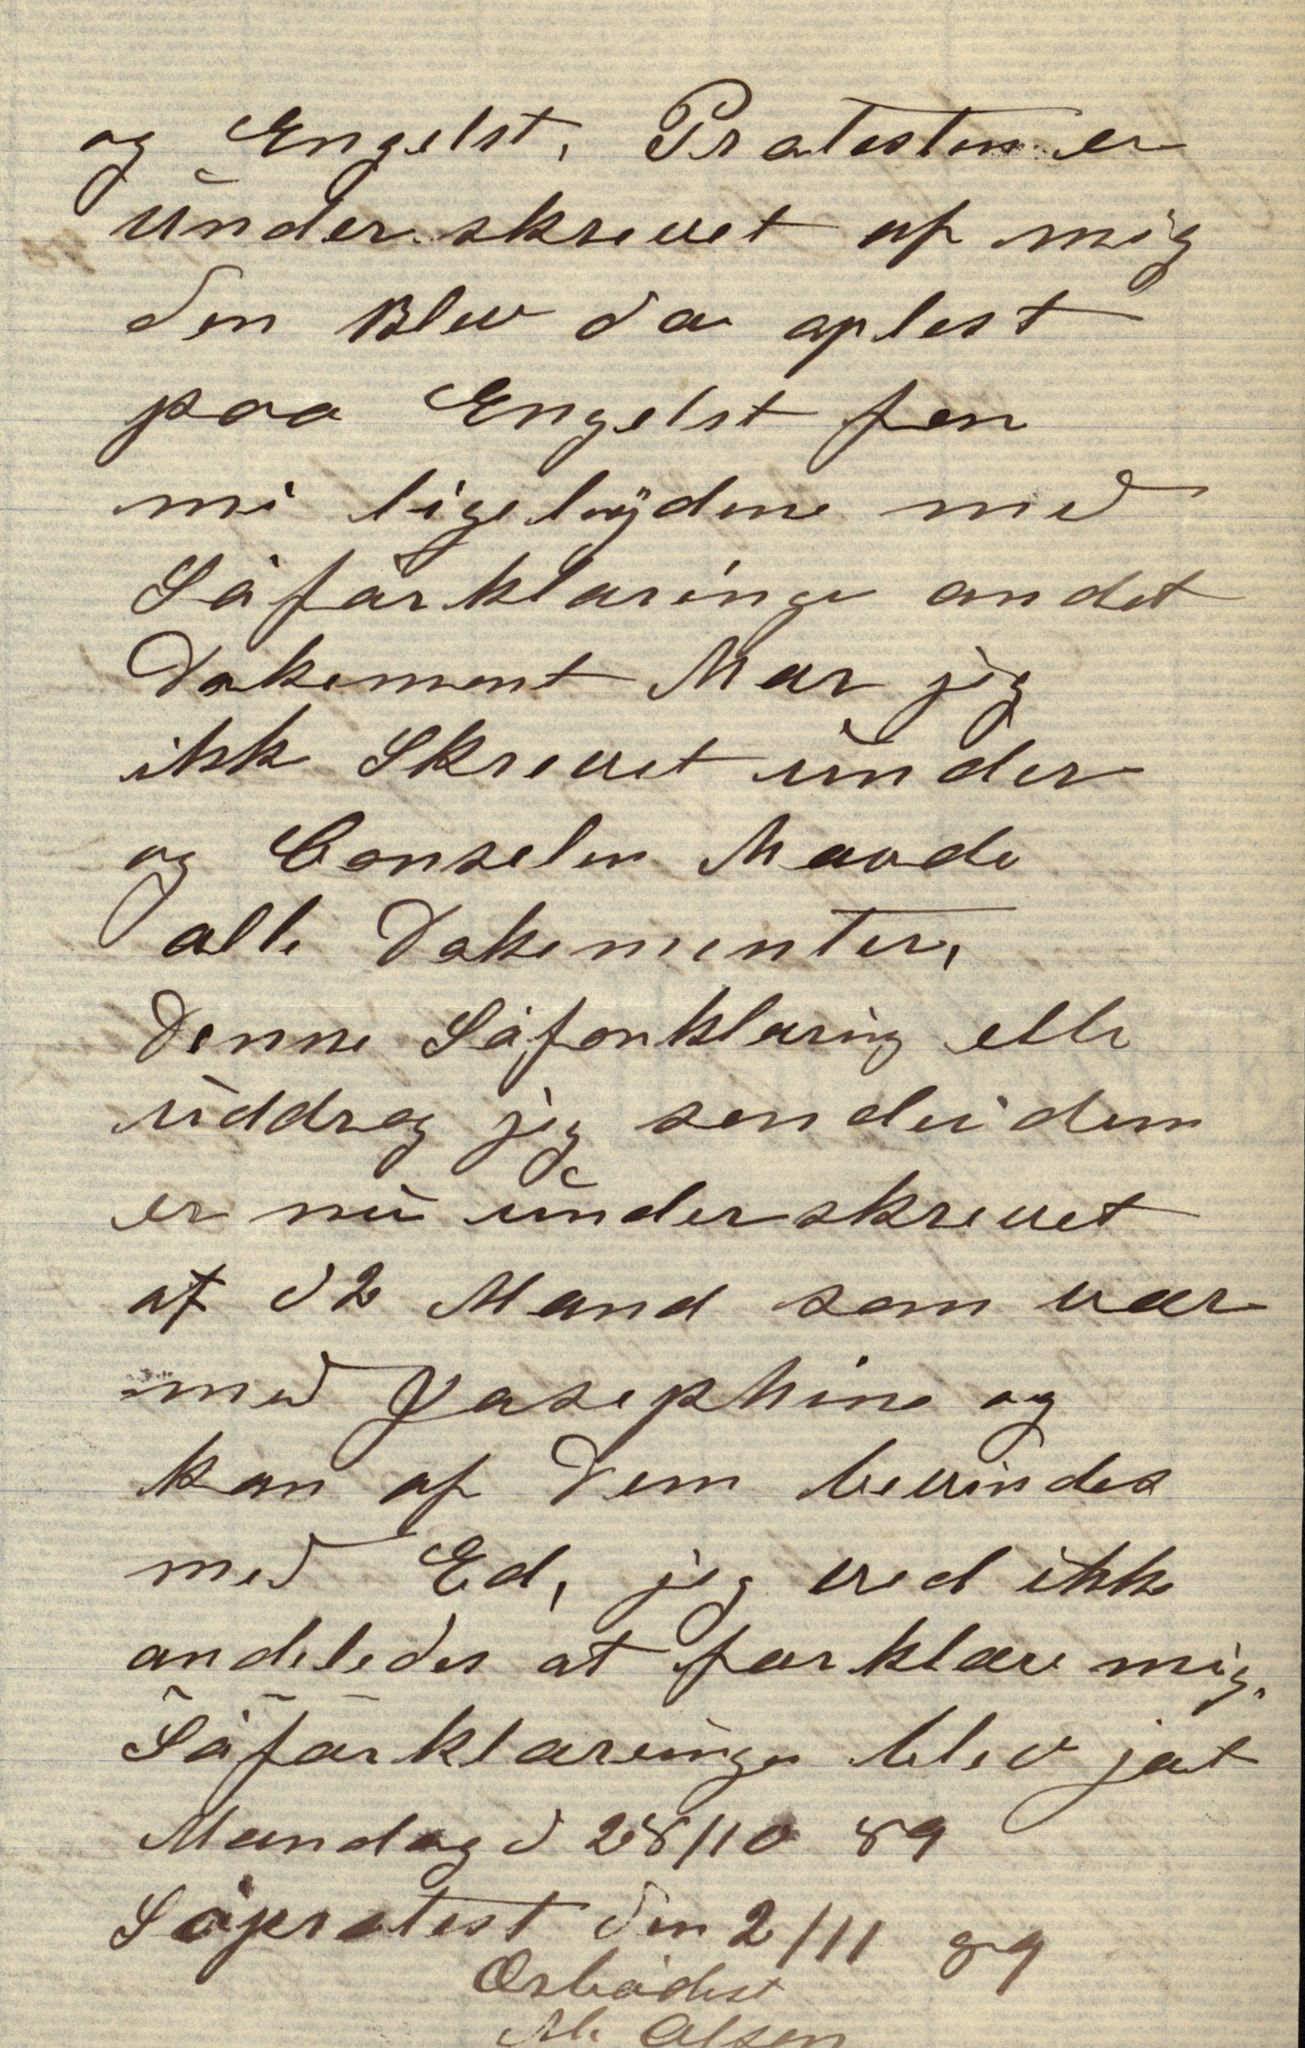 og Engelst, Protesten er
underskrevet af mig
den Blev da oplest
paa Engelst for
mi ligelydene med
Söförklaringe andet
Dokement Har jeg
ikk Skrevet under
og Conselen Havde
alle Dokementer,
Denne Söforklaring elle
uddrag jeg sender dem
er nu underskrevet
af d 2 Mand som var
med Josephine og
kan af Dem bevindes
med Ed, jeg ved ikke
andeledes at forklare mig.
Söförklaringe blev jort
Mandag d 28/10 89
Söprotest den 2/11 89
Ærbödist
M. Olsen